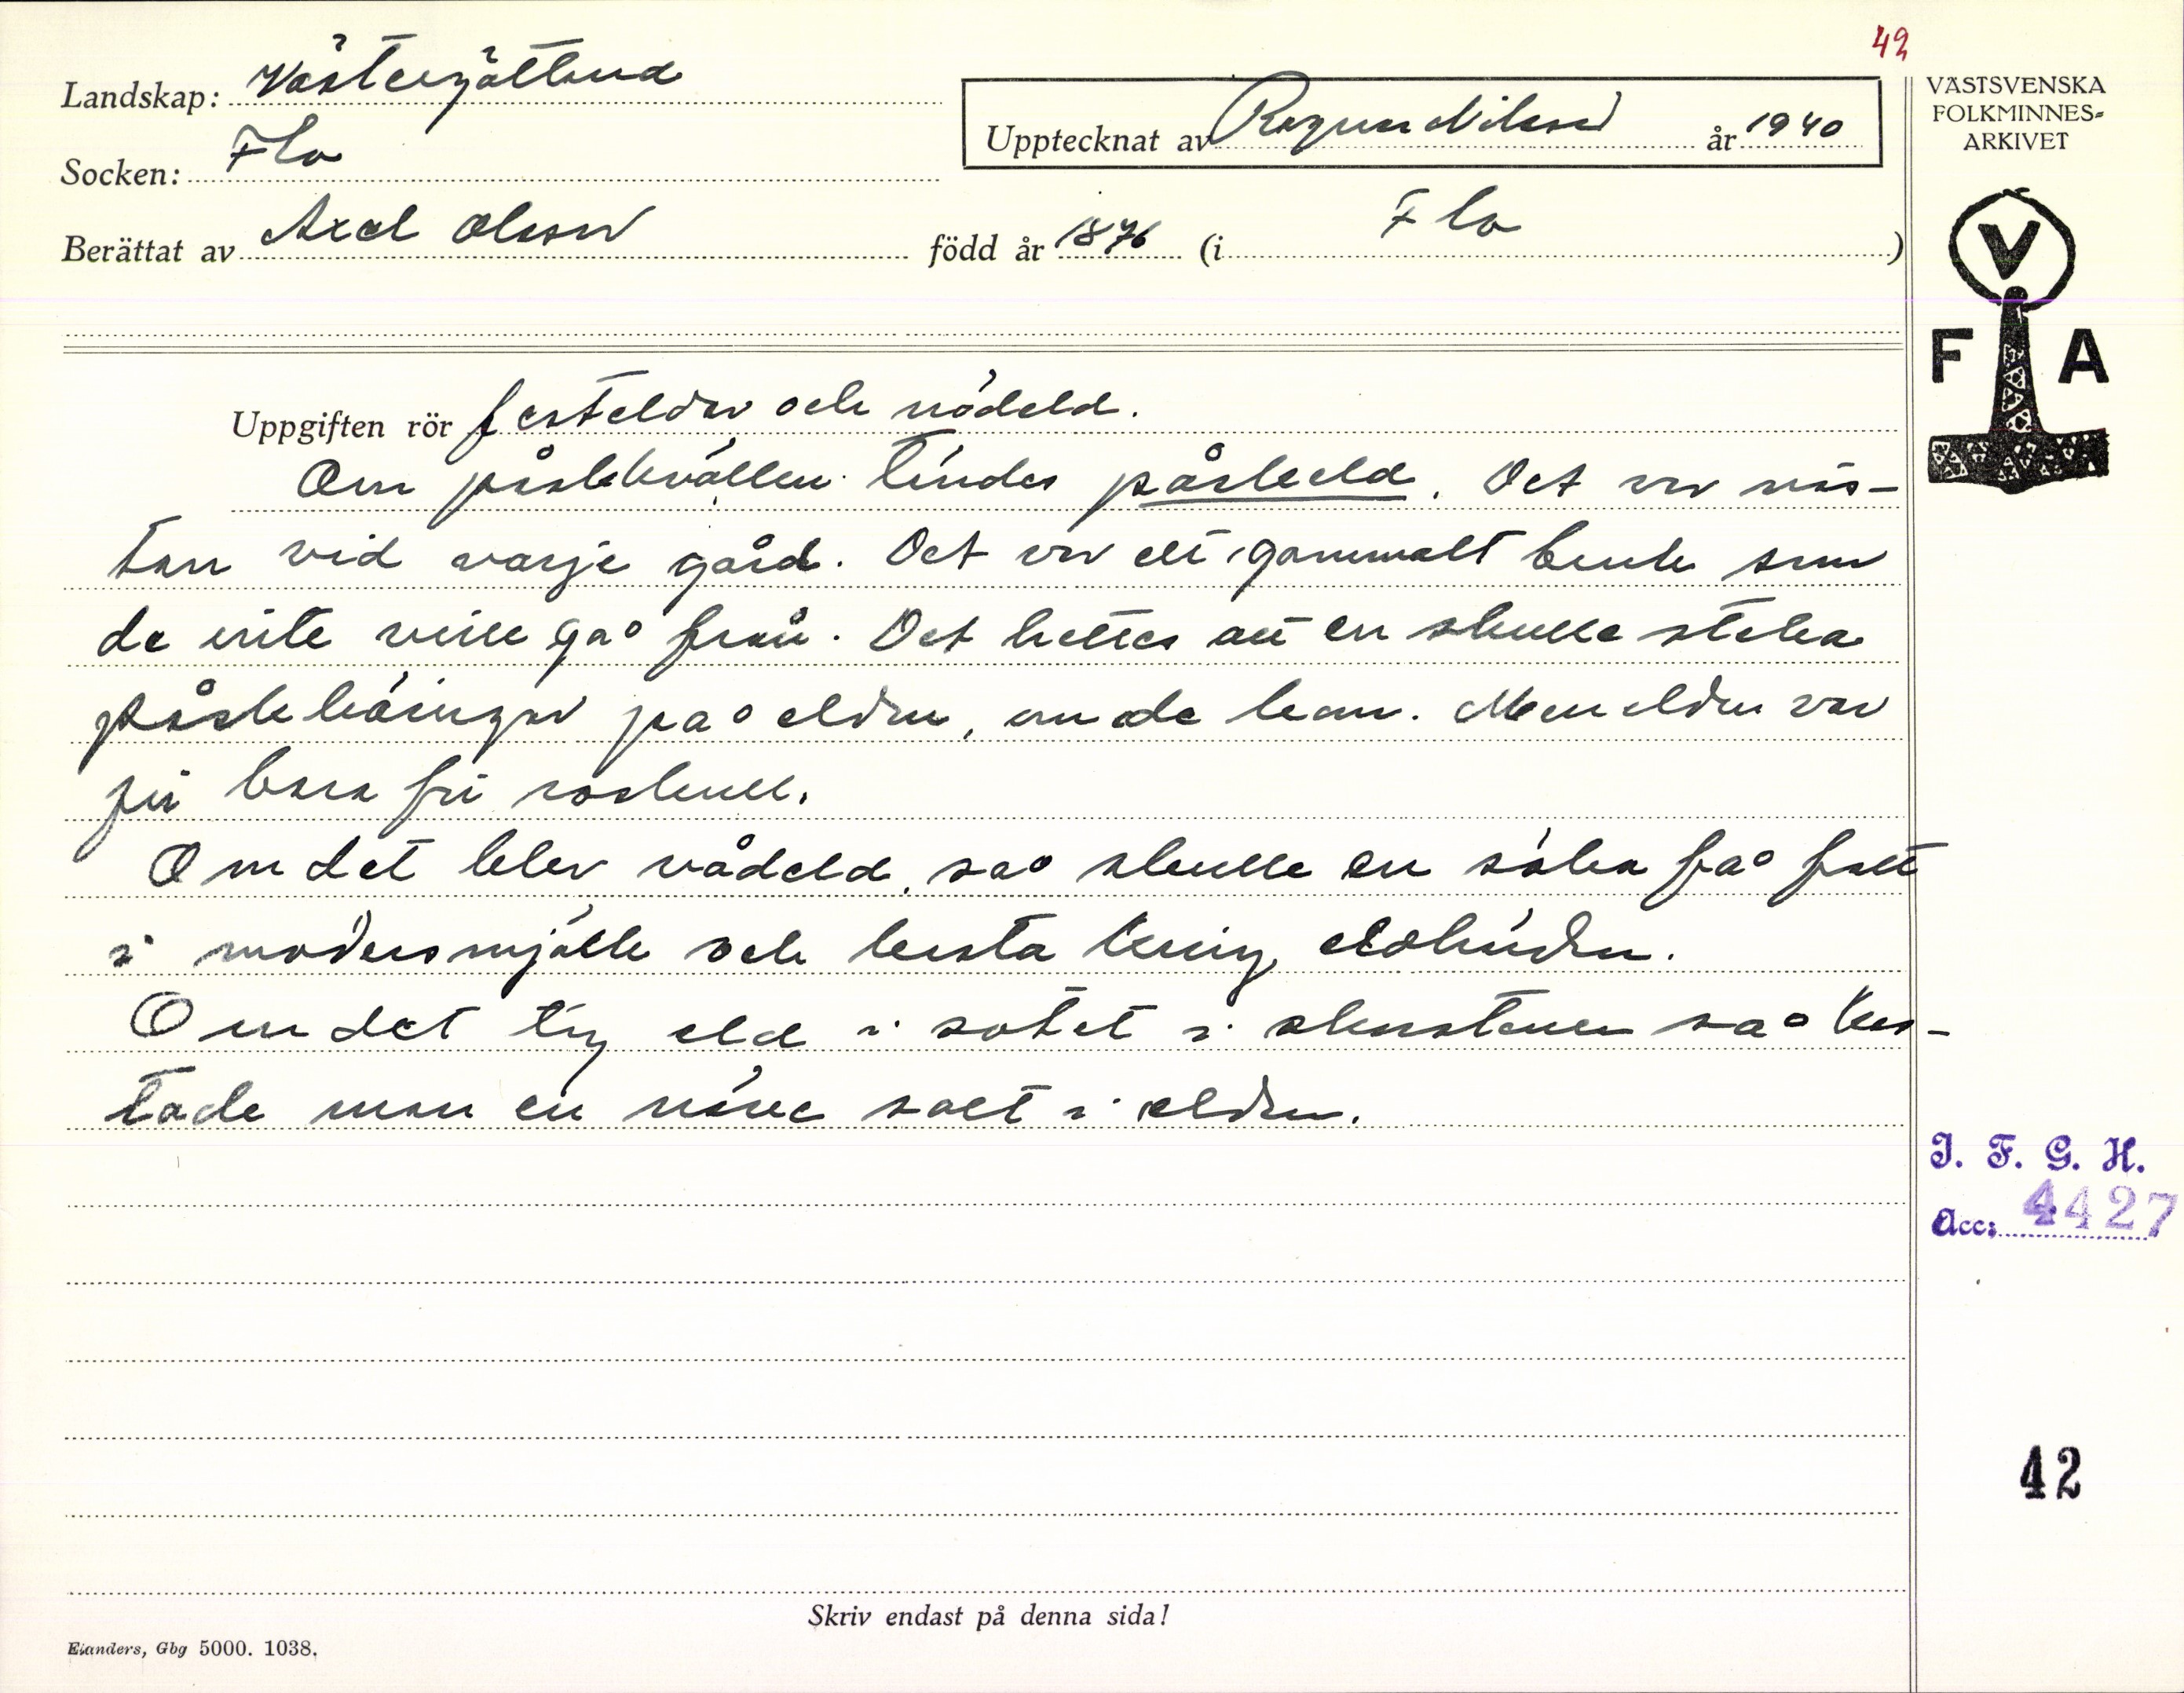 42
Landskap: Västergötland
Upptecknat av Ragnar Nilsson år 1940
VÄSTSVENSKA
FOLKMINNES-
ARKIVET
Socken: Flo
Berättat av Axel Olsson född år 1876 (i Flo)
V
F A
Uppgiften rör festeldar och nödeld.
Om påskkvällen tändes påskeld. Det var näs-
tan vid varje gård. Det var ett gammalt bruk som
de inte ville gå från. Det hettes att en skulle steka
påskkäringar på elden, om de kom. Men elden var
ju bara för roskull.
Om det blev vådeld, så skulle en söka få fatt
i modersmjölk och kasta kring eldhärden.
Om det tog eld i sotet i skorstenen så kas-
tade man en näve salt i elden.
I. F. G. H.
Acc: 4427
42
Skriv endast på denna sida!
Elanders, Gbg 5000. 1038.